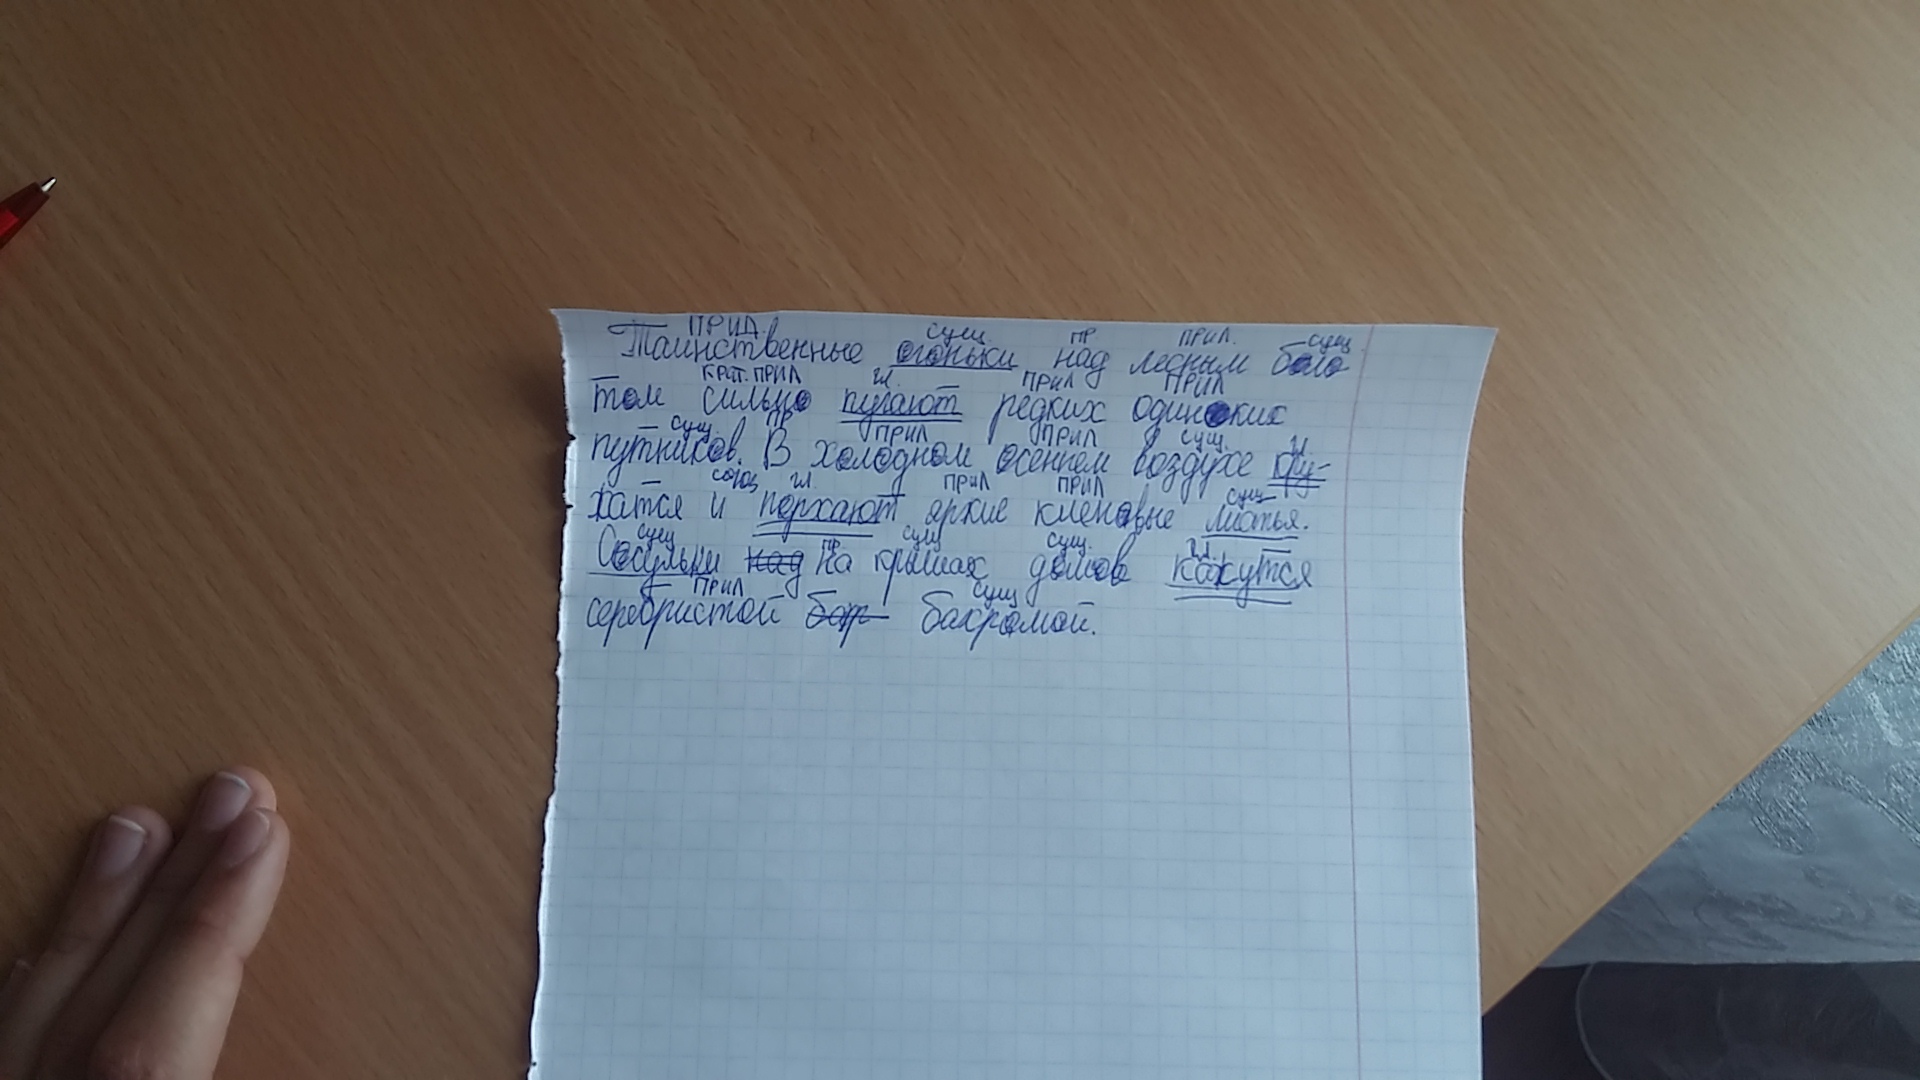 прил. сущ пр прил. сущ
Таинственные огоньки над лесным боло
крат. прил гл. прил прил
том сильно пугают редких одиноких
сущ. пр прил прил сущ. гл
путников. В холодном осеннем воздухе кру-
союз гл. прил прил сущ
жатся и порхают яркие кленовые листья.
сущ пр сущ сущ. гл.
Сосульки над на крышах домов кажутся
прил сущ
серебристой бахр бахромой.